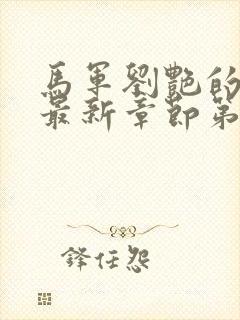 馬軍劉艷的
最新章節第
鋒任怨